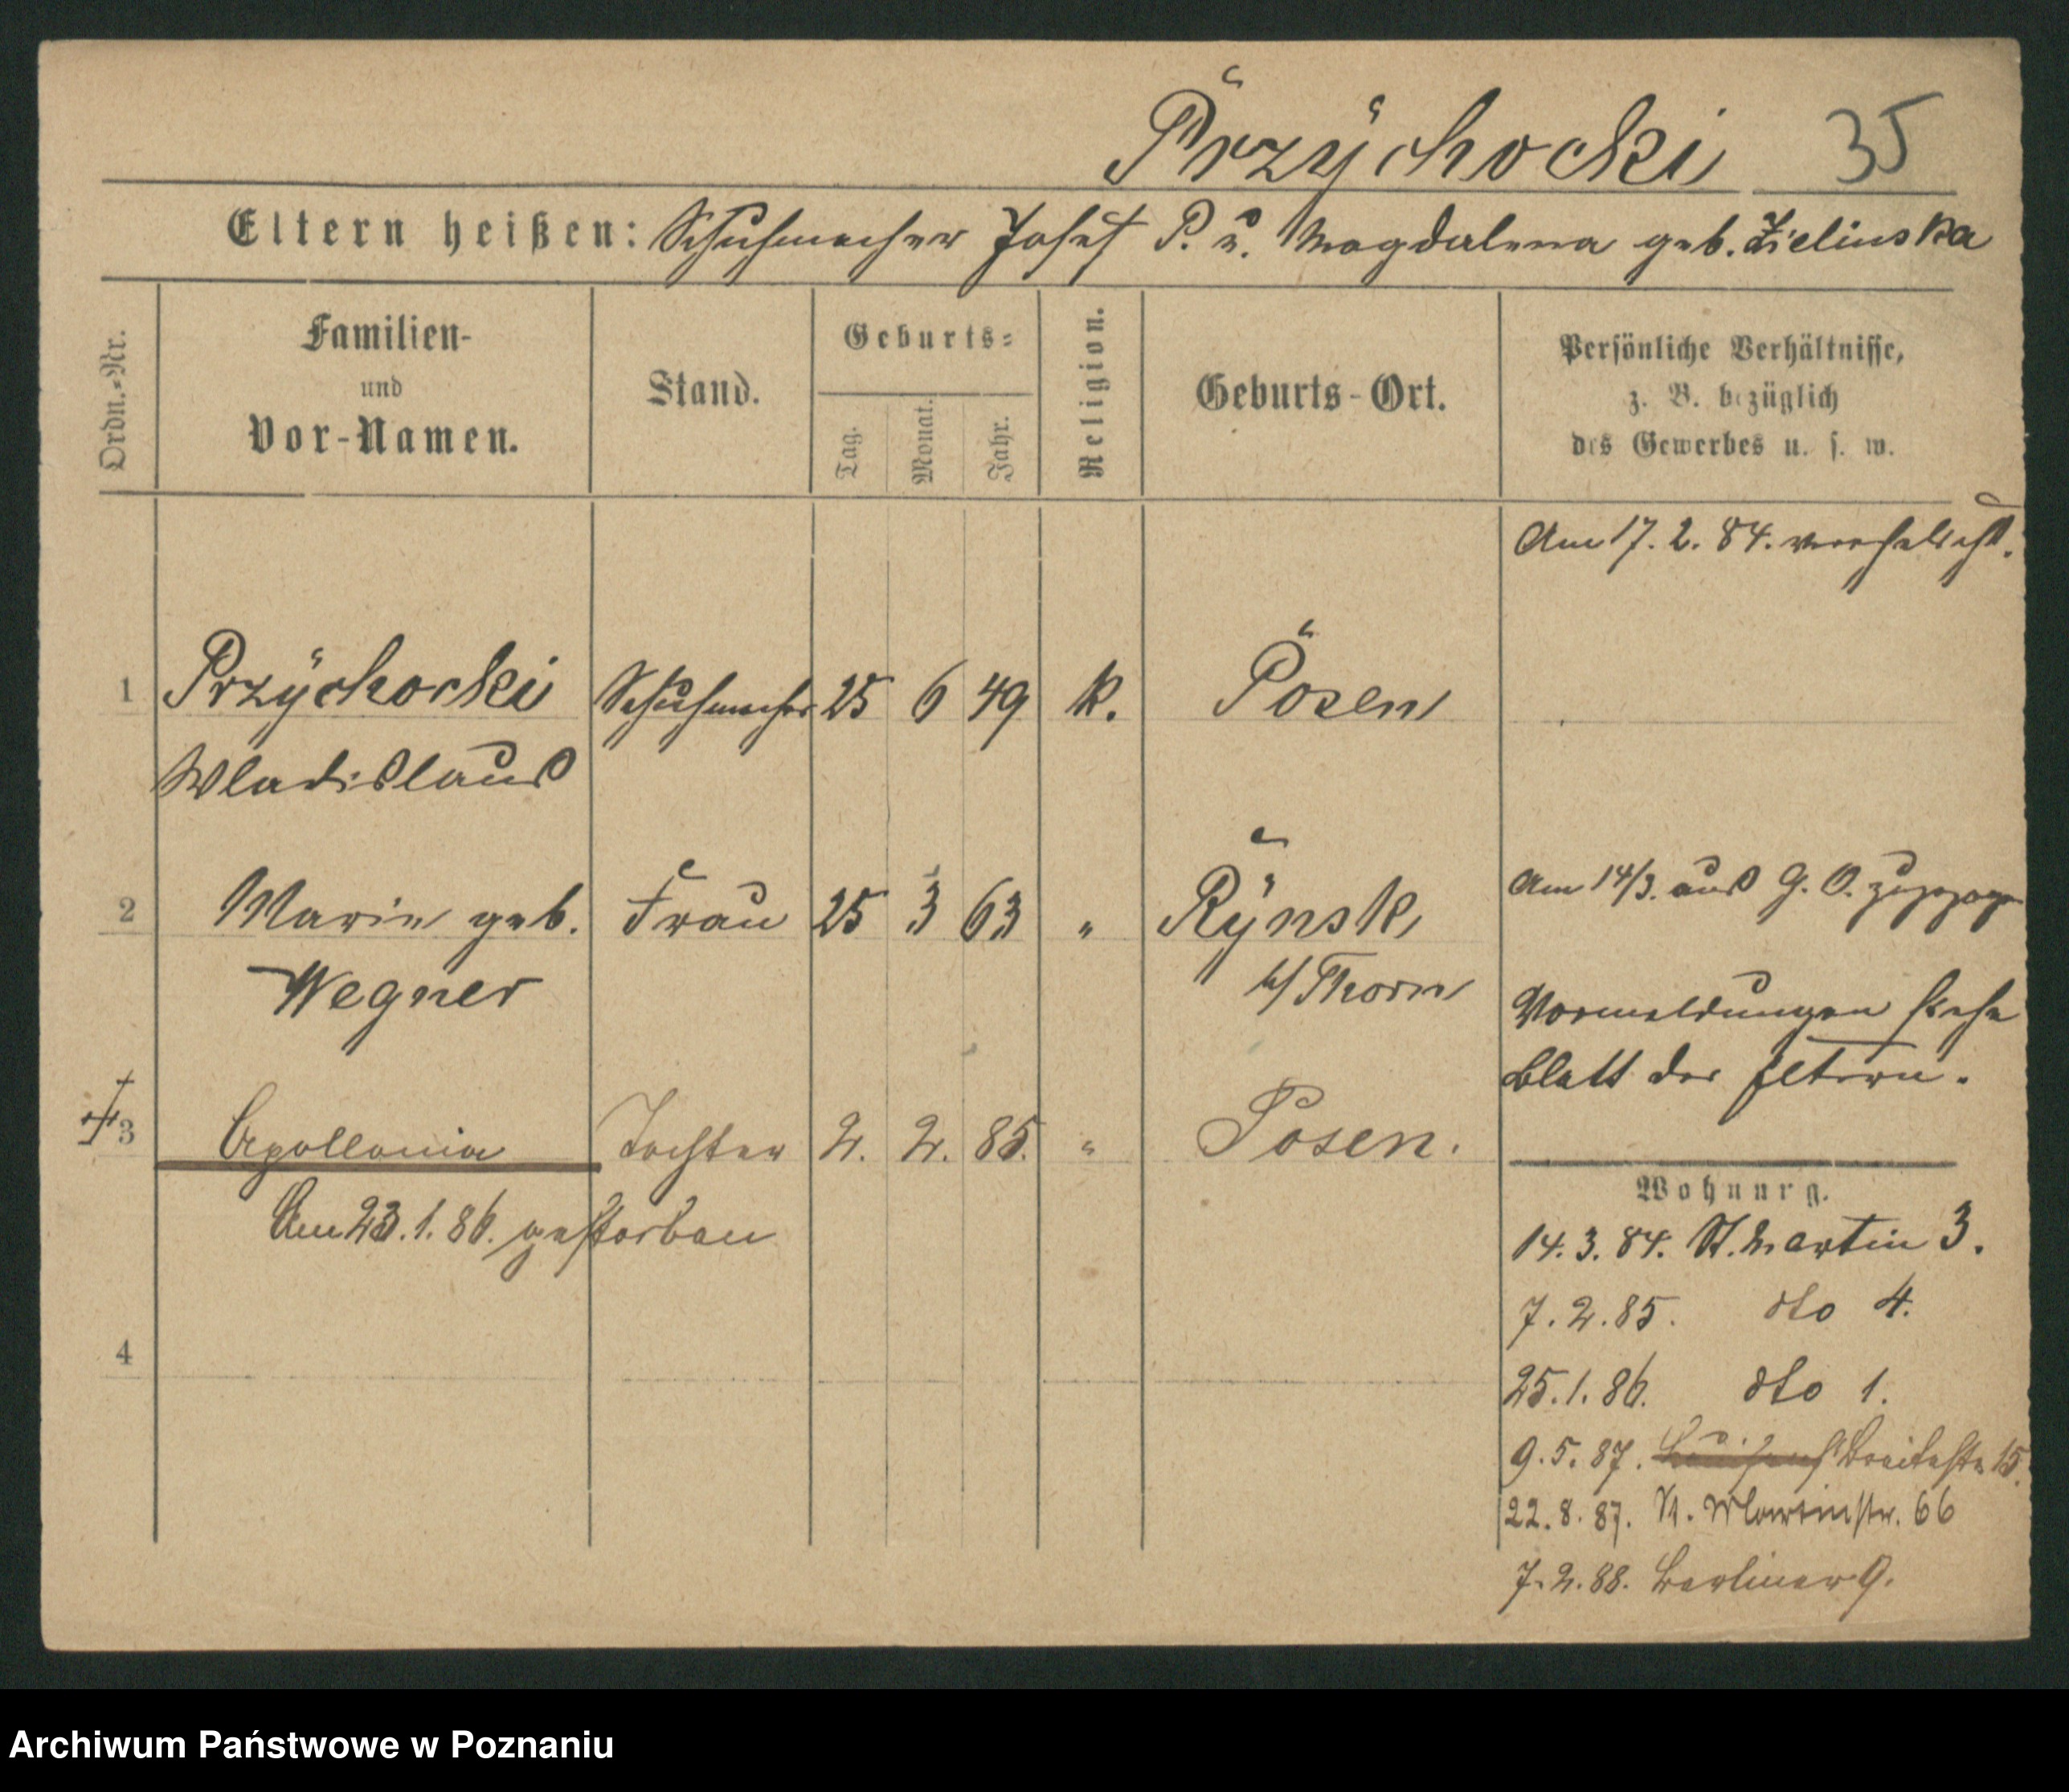 Przÿchocki 35
Eltern heißen: Schuhmacher Josef P. u. Magdalena geb. Zielinska
Ordn.-Nr.
Familien-
und
Vor-Namen.
Stand.
Geburts-
Tag. Monat. Jahr.
Religion.
Geburts-Ort.
Persönliche Verhältnisse,
z. B. bezüglich
des Gewerbes u. s. w.
Am 17. 2. 84. verehelicht.
1 Przÿchocki Schuhmacher 25 6 49 k. Posen
Wladislaus
2 Marie geb. Frau 25 3 63 " Rÿnsk, Am 14/3. aus G. O. zugezogen
Wegner b/Thorn
Vormeldungen siehe
Blatt der Eltern.
3 Apollonia Tochter 2. 2. 85. " Posen.
Am 23. 1. 86. gestorben
4
Wohnung.
14. 3. 84. St. Martin 3.
7. 2. 85. dto 4.
25. 1. 86. dto 1.
9. 5. 87. Breitestr. 15.
22. 8. 87. St. Martinstr. 66
7. 2. 88. Berliner 9.
Archiwum Państwowe w Poznaniu